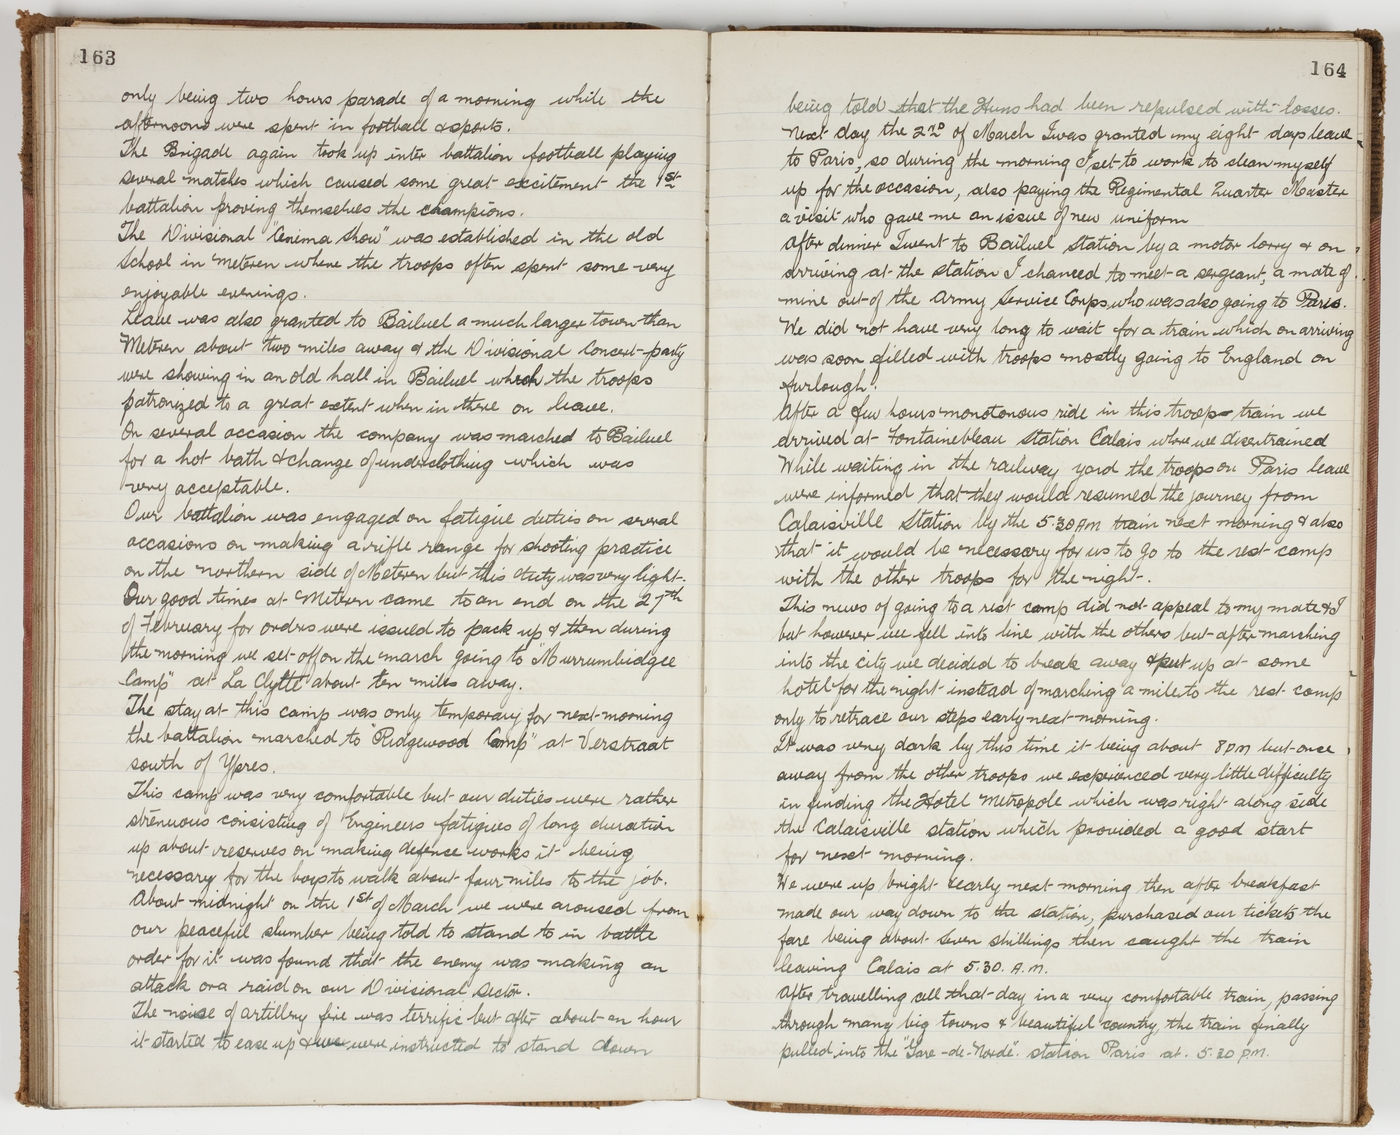 163
only being two hours parade of a morning while the
afternoons were spent in football & sports.
The Brigade again took up inter battalion football playing
several matches which caused some great excitement the 1st
battalion proving themselves the champions.
The Divisional "Cinema Show" was established in the old
School in Meteren where the troops often spent some very
enjoyable evenings.
Leave was also granted to Bailuel a much larger town than
Meteren about two miles away & the Divisional Concert-party
were showing in an old hall in Bailuel which the troops
patronized to a great extent when in there on leave.
On several occasion the company was marched to Bailuel
for a hot bath & change of underclothing which was
very acceptable.
Our battalion was engaged on fatigue duties on several
occasions on making a rifle range for shooting practice
on the northern side of Meteren but this duty was very light.
Our good times at Meteren came to an end on the 27th
of February for orders were issued to pack up & then during
the morning we set off on the march going to "Murrumbidgee
Camp" at La Clytte about ten miles away.
The stay at this camp was only temporary for next morning
the battalion marched to "Ridgewood Camp" at Verstraat
south of Ypres.
This camp was very comfortable but our duties were rather
strenuous consisting of Engineers fatigues of long duration
up about reserves on making defence works it being
necessary for the boys to walk about four miles to the job.
About midnight on the 1st of March we were aroused from
our peaceful slumber being told to stand to in battle
order for it was found that the enemy was making an
attack or a raid on our Divisional Sector.
The noise of artillery fire was terrific but after about an hour
it started to ease up & we were instructed to stand down
164
being told that the Huns had been repulsed with losses.
Next day the 2nd of March I was granted my eight days leave
to Paris, so during the morning I set to work to clean myself
up for the occasion, also paying the Regimental Quarter Master
a visit who gave me an issue of new uniform
After dinner I went to Bailuel Station by a motor lorry & on
arriving at the station I chanced to meet a sergeant, a mate of
mine out of the Army Service Corps who was also going to Paris.
We did not have very long to wait for a train which on arriving
was soon filled with troops mostly going to England on
furlough.
After a few hours monotonous ride in this troop train we
arrived at Fontainebleau station Calais where we disentrained
While waiting in the railway yard the troops on Paris leave
were informed that they would resumed the journey from
Calaisville Station by the 5.30 AM train next morning & also
that it would be necessary for us to go to the rest camp
with the other troops for the night.
This news of going to a rest camp did not appeal to my mate & I
but however we fell into line with the others but after marching
into the city we decided to break away & put up at some
hotel for the night instead of marching a mile to the rest camp
only to retrace our steps early next morning.
It was very dark by this time it being about 8 pm but once
away from the other troops we expierced very little difficulty
in finding the Hotel Metropole which was right along side
the Calaisville station which provided a good start
for next morning.
We were up bright & early next morning then after breakfast
made our way down to the station, purchased our tickets the
fare being about seven shillings then caught the train
leaving Calais at 5.30. A.M.
After travelling all that day in a very comfortable train, passing
through many big towns & beautiful country, the train finally
pulled into the "Gare-de-Norde". station Paris at. 5.30 P.M.